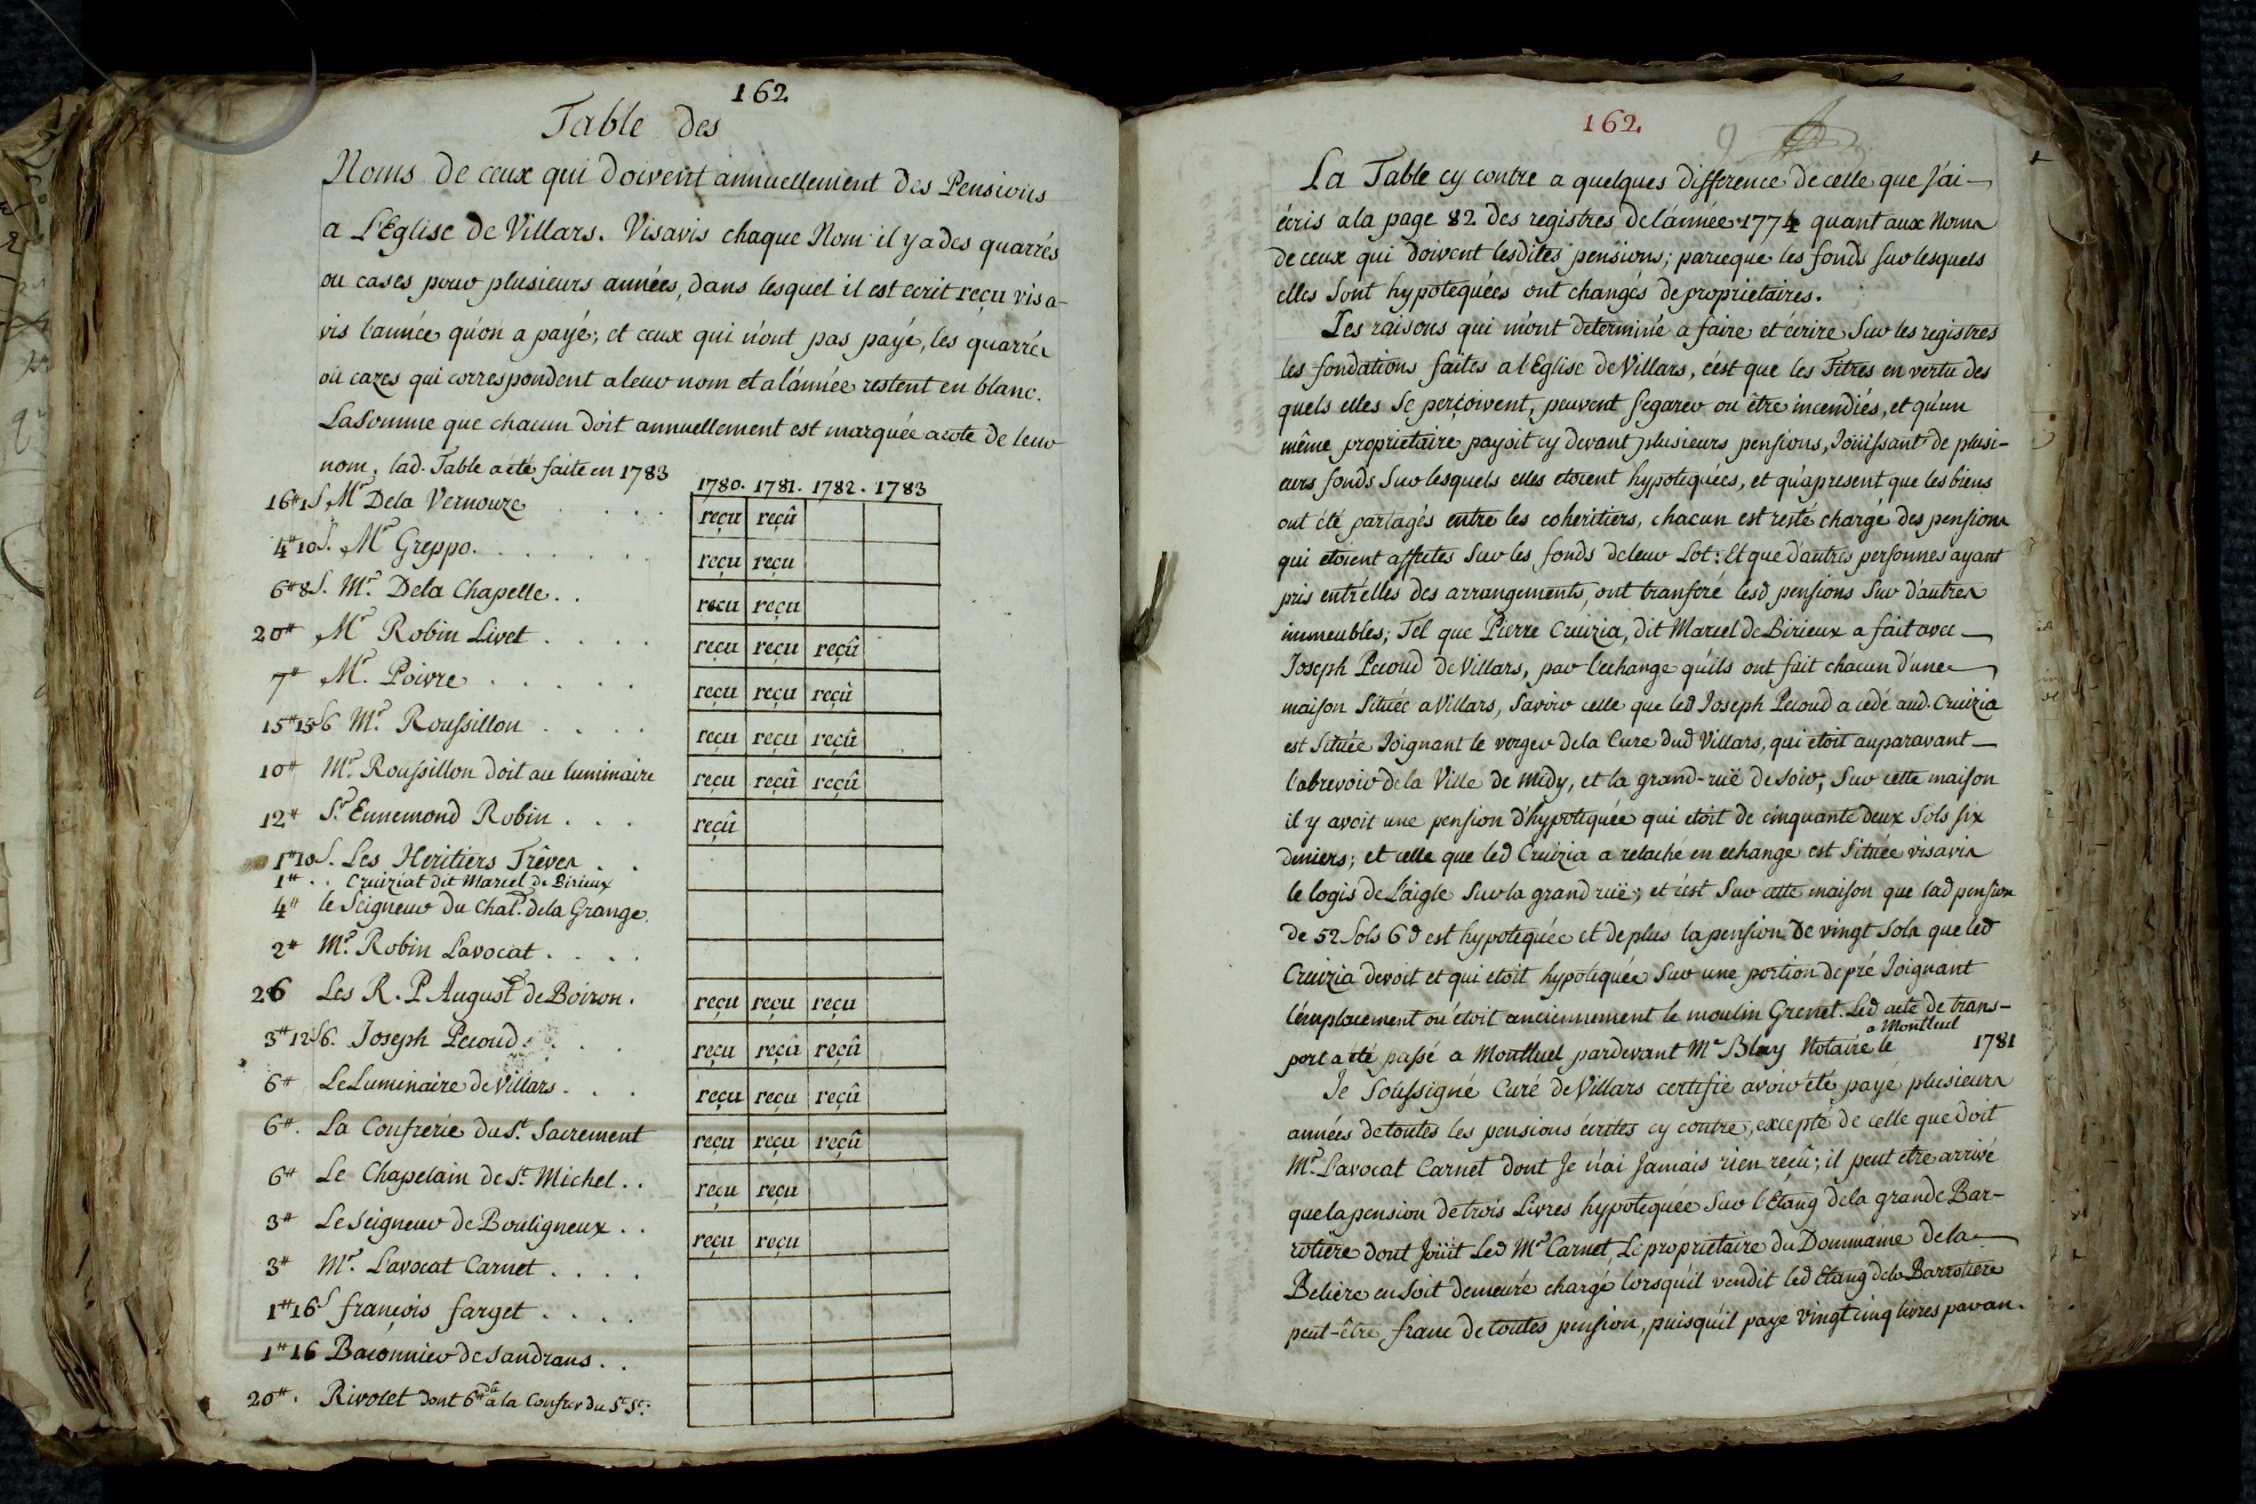 162
Table des
Noms de ceux qui doivent annuellement des Pensions
a L'Eglise de Villars. Visavis chaque Nom il y a des quarrés
ou cases pour plusieurs années, dans lesquel il est ecrit reçu vis a-
vis l'année qu'on a payé; et ceux qui n'ont pas payé, les quarrés
ou cazes qui correspondent a leur nom et a l'année restent en blanc.
La Somme que chacun doit annuellement est marquée a coté de leur
nom. lad. Table a été faite en 1783
1780. 1781. 1782. 1783
16# 1S Mr De la Vernouze . . . reçu reçû
4# 10S. Mr Greppo. . . . . . . reçu reçu
6# 8S. Mr. De la Chapelle . . reçu reçu
20# Mr Robin Livet . . . . reçu reçu reçû
7# Mr. Poivre . . . . . reçu reçu reçû
15# 15S6 Mr. Roussillon . . . . reçu reçu reçû
10# Mr. Roussillon doit au luminaire reçu reçû reçû
12# Sr Ennemond Robin . . . reçû
1# 10S. Les Heritiers Trêves . .
1# . . Cruiziat dit Marcel de Birieux
4# le Seigneur du Chat. de la Grange.
2# Mr. Robin Lavocat . . . .
26 Les R. P. August de Boiron. reçu reçu reçu
3# 12S6. Joseph Pecoud . . . reçu reçû reçû
6# Le Luminaire de Villars . . . reçu reçu reçû
6#. La Confrérie du St. Sacrement reçu reçu reçû
6# Le Chapelain de St Michel . . reçu reçu
3# Le Seigneur de Bouligneux . . reçu reçu
3# Mr. L'avocat Carnet . . . .
1# 16S françois farget . . . .
1# 16 Baconnier de Sandrans . .
20#. Rivolet dont 6# dû a la Confrer du St Sr.
162.
La Table cy contre a quelques difference de celle que j'ai
écris a la page 82 des registres de l'année 1774 quant aux Noms
de ceux qui doivent lesdites pensions; parceque les fonds sur lesquels
elles sont hypotequées ont changés de proprietaires.
Les raisons qui m'ont determiné a faire et écrire sur les registres
les fondations faites a l'Eglise de Villars, c'est que les Titres en vertu des
quels elles se perçoivent, peuvent s'egarer ou être incendiés, et qu'un
même proprietaire payoit cy devant plusieurs pensions, Joüissant de plusi-
eurs fonds sur lesquels elles etoient hypotequées, et qu'apresent que les biens
ont été partagés entre les coheritiers, chacun est resté chargé des pensions
qui etoient affectes sur les fonds de leur Lot: Et que d'autres personnes ayant
pris entr'elles des arrangements, ont tranferé lesd pensions sur d'autres
immeubles; Tel que Pierre Cruizia, dit Marcel de Birieux a fait avec
Joseph Pecoud de Villars, par l'echange qu'ils ont fait chacun d'une
maison Située a Villars, Savoir celle que led Joseph Pecoud a cedé aud. Cruizia
est Située Joignant le verger de la Cure dud Villars, qui etoit auparavant
l'abrevoir de la Ville de midy, et la grand-ruë de soir; Sur cette maison
il y avoit une pension d'hypotequée qui etoit de cinquante deux Sols six
deniers; et celle que led Cruizia a relaché en echange est Située visavis
le logis de L'aigle Sur la grand ruë; et c'est Sur cette maison que lad pension
de 52 Sols 6 d est hypotequée et de plus la pension de vingt Sols que led
Cruizia devoit et qui etoit hypotequée Sur une portion de pré Joignant
l'emplacement ou étoit anciennement le moulin Grenet. Led acte de trans-
port a été passé a Montluel pardevant Me Blay Notaire a Montluel le 1781
Je Soussigné Curé de Villars certifie avoir été payé plusieurs
années de toutes les pensions écrites cy contre, excepté de celle que doit
Mr. L'avocat Carnet dont Je n'ai Jamais rien reçû; il peut etre arrivé
que la pension de trois Livres hypotequée Sur l'Etang de la grande Bar-
rotiere dont Joüit Led Mr Carnet, Le proprietaire du Dommaine de la
Beliere en soit demeuré chargé lorsqu'il vendit led Etang de la Barrotiere
peut-être franc de toutes pension, puisqu'il paye vingt cinq livres par an.